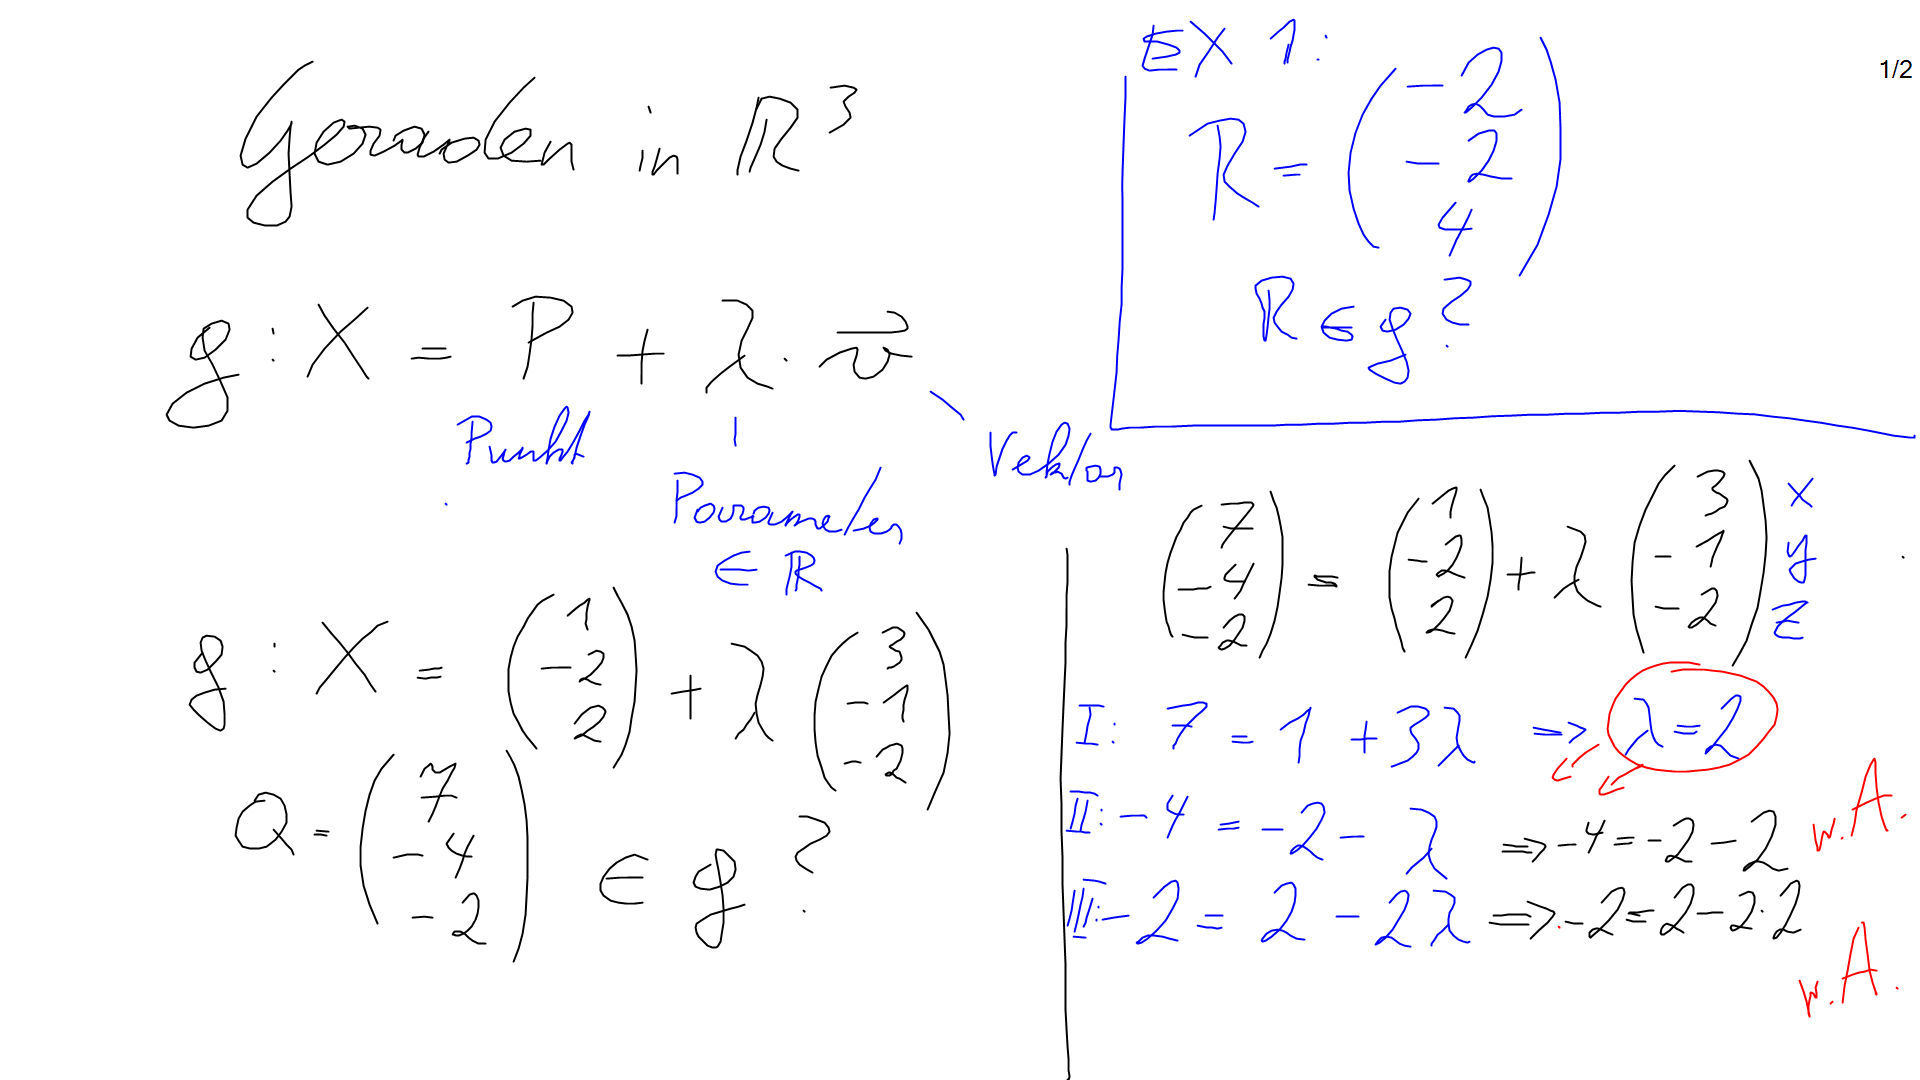 Geraden in ℝ³
g : X = P + λ · v⃗
Punkt
Parameter
∈ ℝ
Vektor
g : X = (1 -2 2) + λ (3 -1 -2)
Q = (7 -4 -2) ∈ g ?
EX 1:
R = (-2 -2 4)
R ∈ g ?
1/2
(7 -4 -2) = (1 -2 2) + λ (3 -1 -2) x y z
I: 7 = 1 + 3λ => λ = 2
II: -4 = -2 - λ => -4 = -2 - 2 w.A.
III: -2 = 2 - 2λ => -2 = 2 - 2·2
w.A.